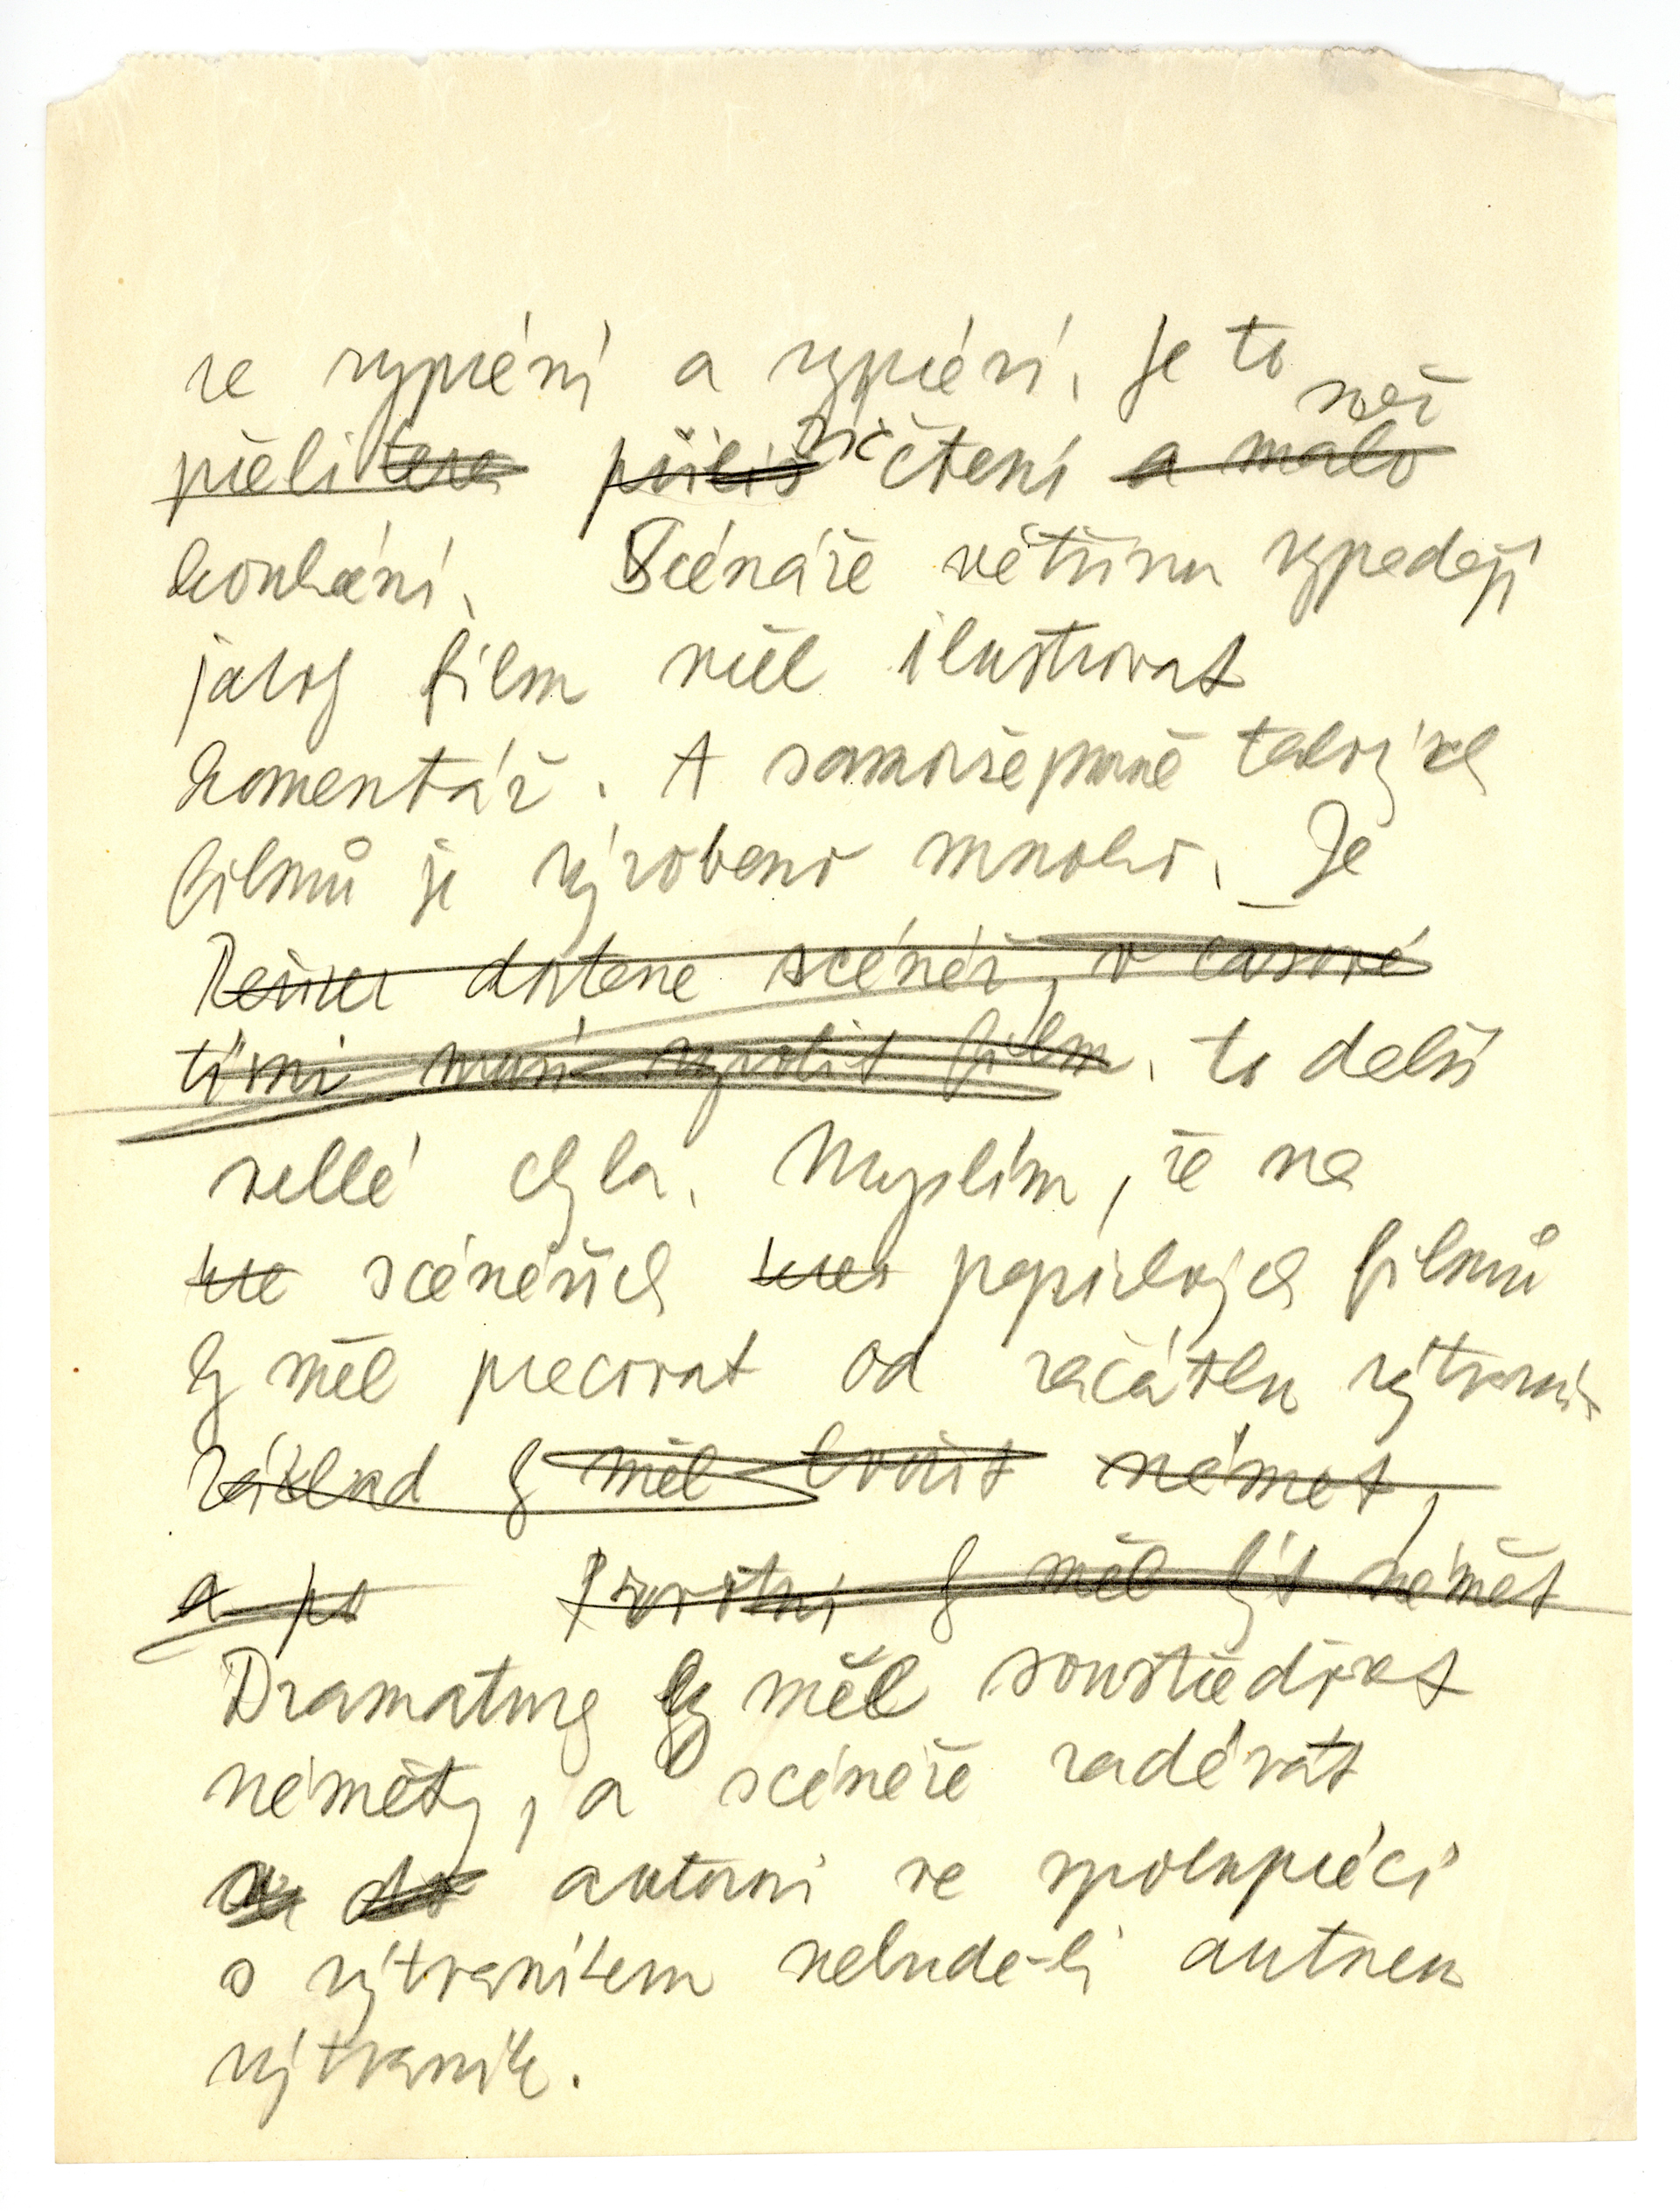 se vypráví a vypráví. Je to
než
přeliterа příliš víc čtení a málo
koukání. Scénáře většinu vypadají
jakoby film měl ilustrovat
komentář. A samozřejmě takových
filmů je vyrobeno mnoho. Je
Režisér dostane scénář, v časové
tísni musí vyrobit film. to další
velká chyba. Myslím, že na
scénářích popisových filmů
by měl pracovat od začátku výtvarník
Základ by měl tvořit námět,
a po Prvotní by měl být námět
Dramaturg by měl soustřeďovat
náměty, a scénáře zadávat
do autorovi ve spolupráci
s výtvarníkem nebude-li autorem
výtvarník.